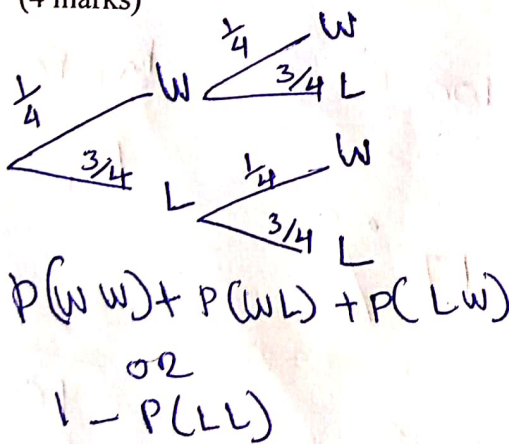 (4 marks)
1/4 W
1/4 W
3/4 L
3/4 L
1/4 W
3/4 L
P(WW) + P(WL) + P(LW)
or
1 - P(LL)